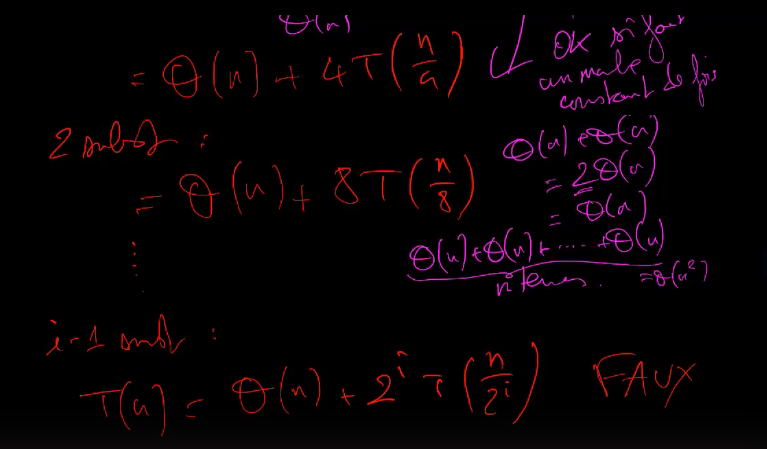 Θ(n)
= Θ(n) + 4T(n/4)
OK si jour
un nombre
constant de fois
2 subst :
= Θ(n) + 8T(n/8)
Θ(n) + Θ(n)
= 2Θ(n)
= Θ(n)
Θ(n) + Θ(n) + .... + Θ(n)
n termes. = Θ(n²)
i-1 subst :
T(n) = Θ(n) + 2^i T(n/2^i) FAUX